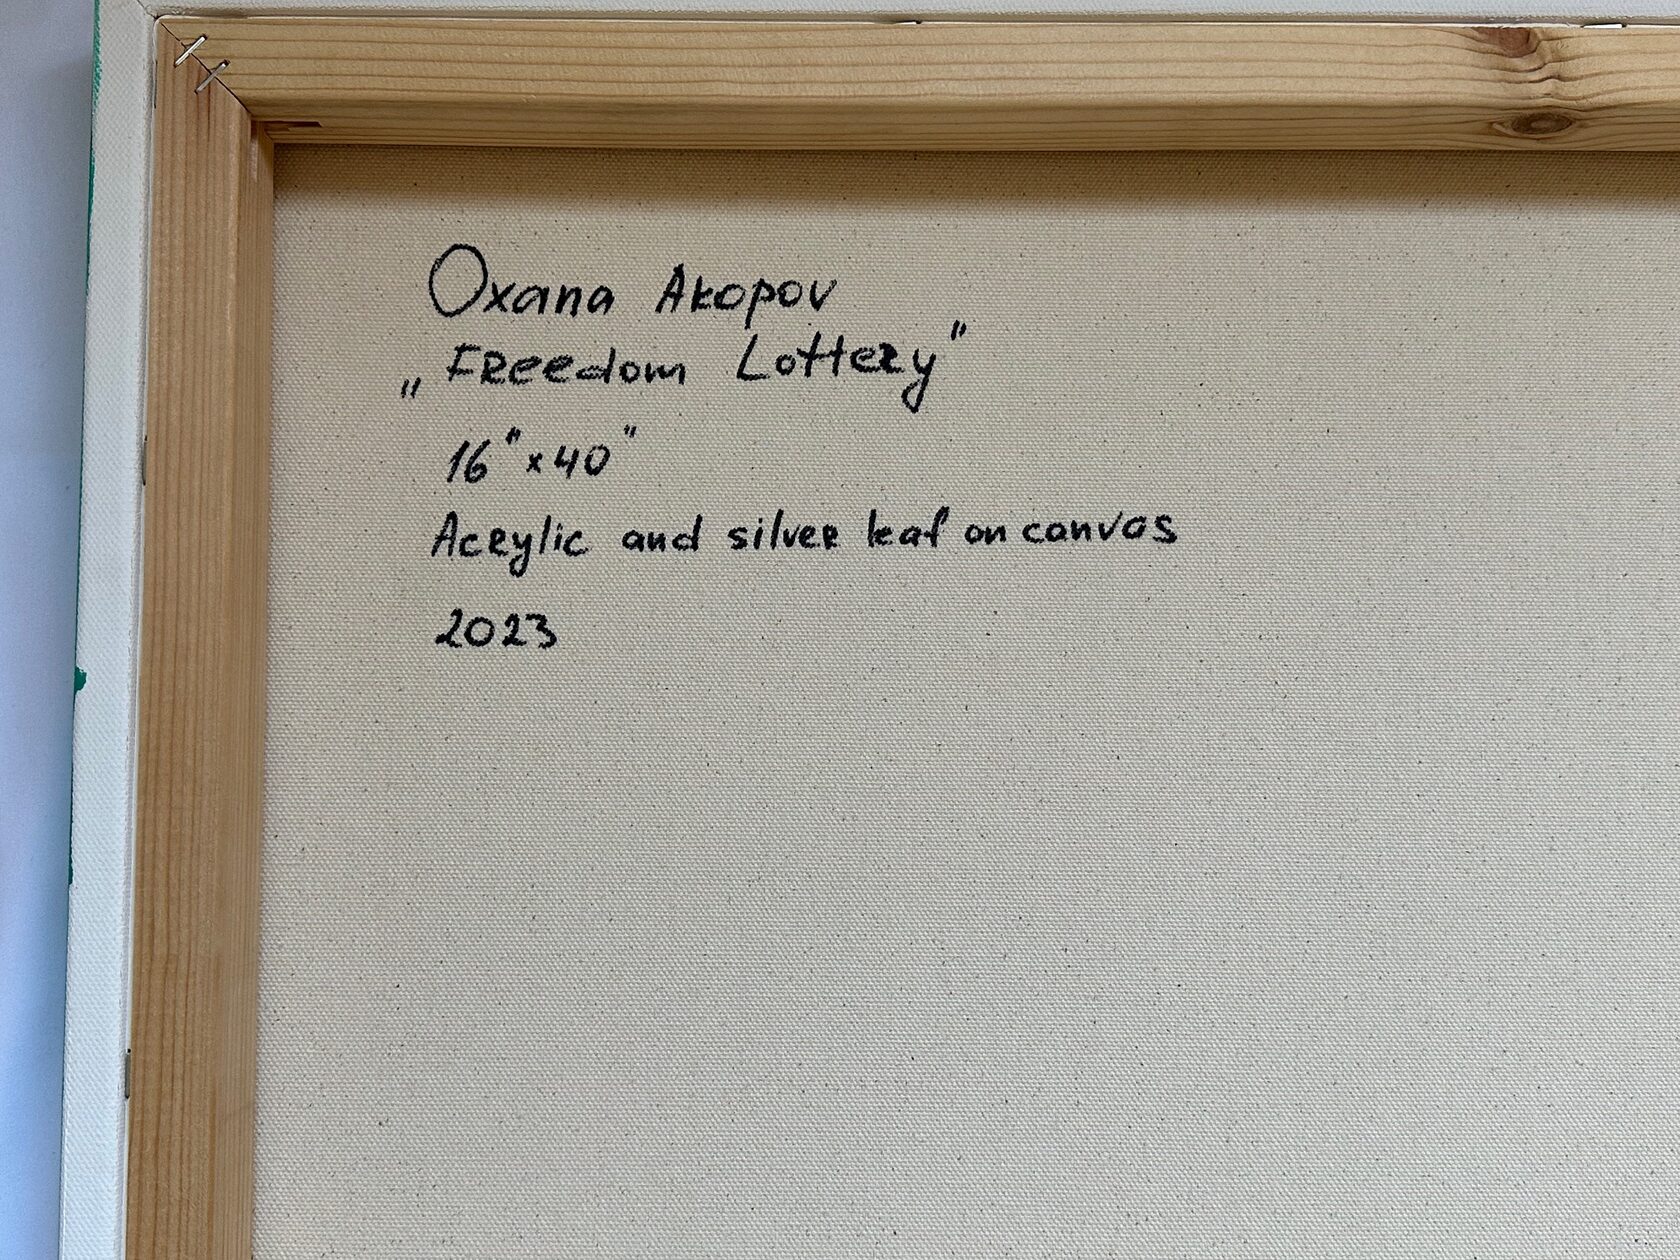 Oxana Akopov
„Freedom Lottery"
16"x40"
Acrylic and silver leaf on canvas
2023